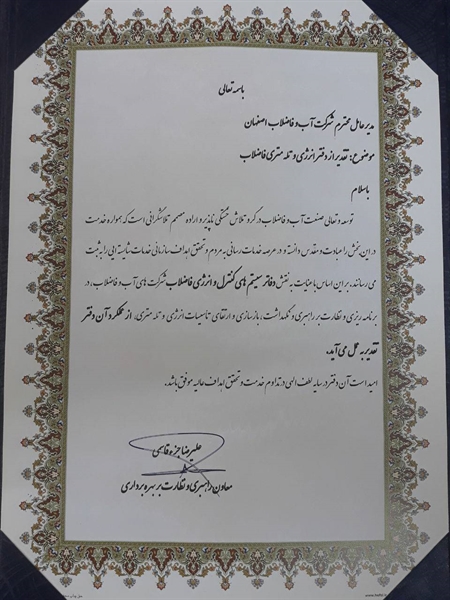 باسمه تعالی
مدیرعامل محترم شرکت آب و فاضلاب اصفهان
موضوع: تقدیر از دفتر انرژی و تله متری فاضلاب
باسلام
توسعه و تعالی صنعت آب و فاضلاب در گرو تلاش خستگی ناپذیر و اراده مصمم تلاشگرانی است که همواره خدمت
در این بخش را عبادت و مقدس دانسته و در عرصه خدمات رسانی به مردم و تحقق اهداف سازمانی خدمات شایسته ایی را به ثبت
می رسانند. بر این اساس با عنایت به نقش دفاتر سیستم های کنترل و انرژی فاضلاب شرکت های آب و فاضلاب، در
برنامه ریزی و نظارت بر راهبری و نگهداشت، بازسازی و ارتقای تاسیسات انرژی و تله متری، از عملکرد آن دفتر
تقدیر به عمل می آید.
امید است آن دفتر در سایه لطف الهی در تداوم خدمت و تحقق اهداف عالیه موفق باشد.
علیرضا جزء قاسمی
معاون راهبری و نظارت بر بهره برداری